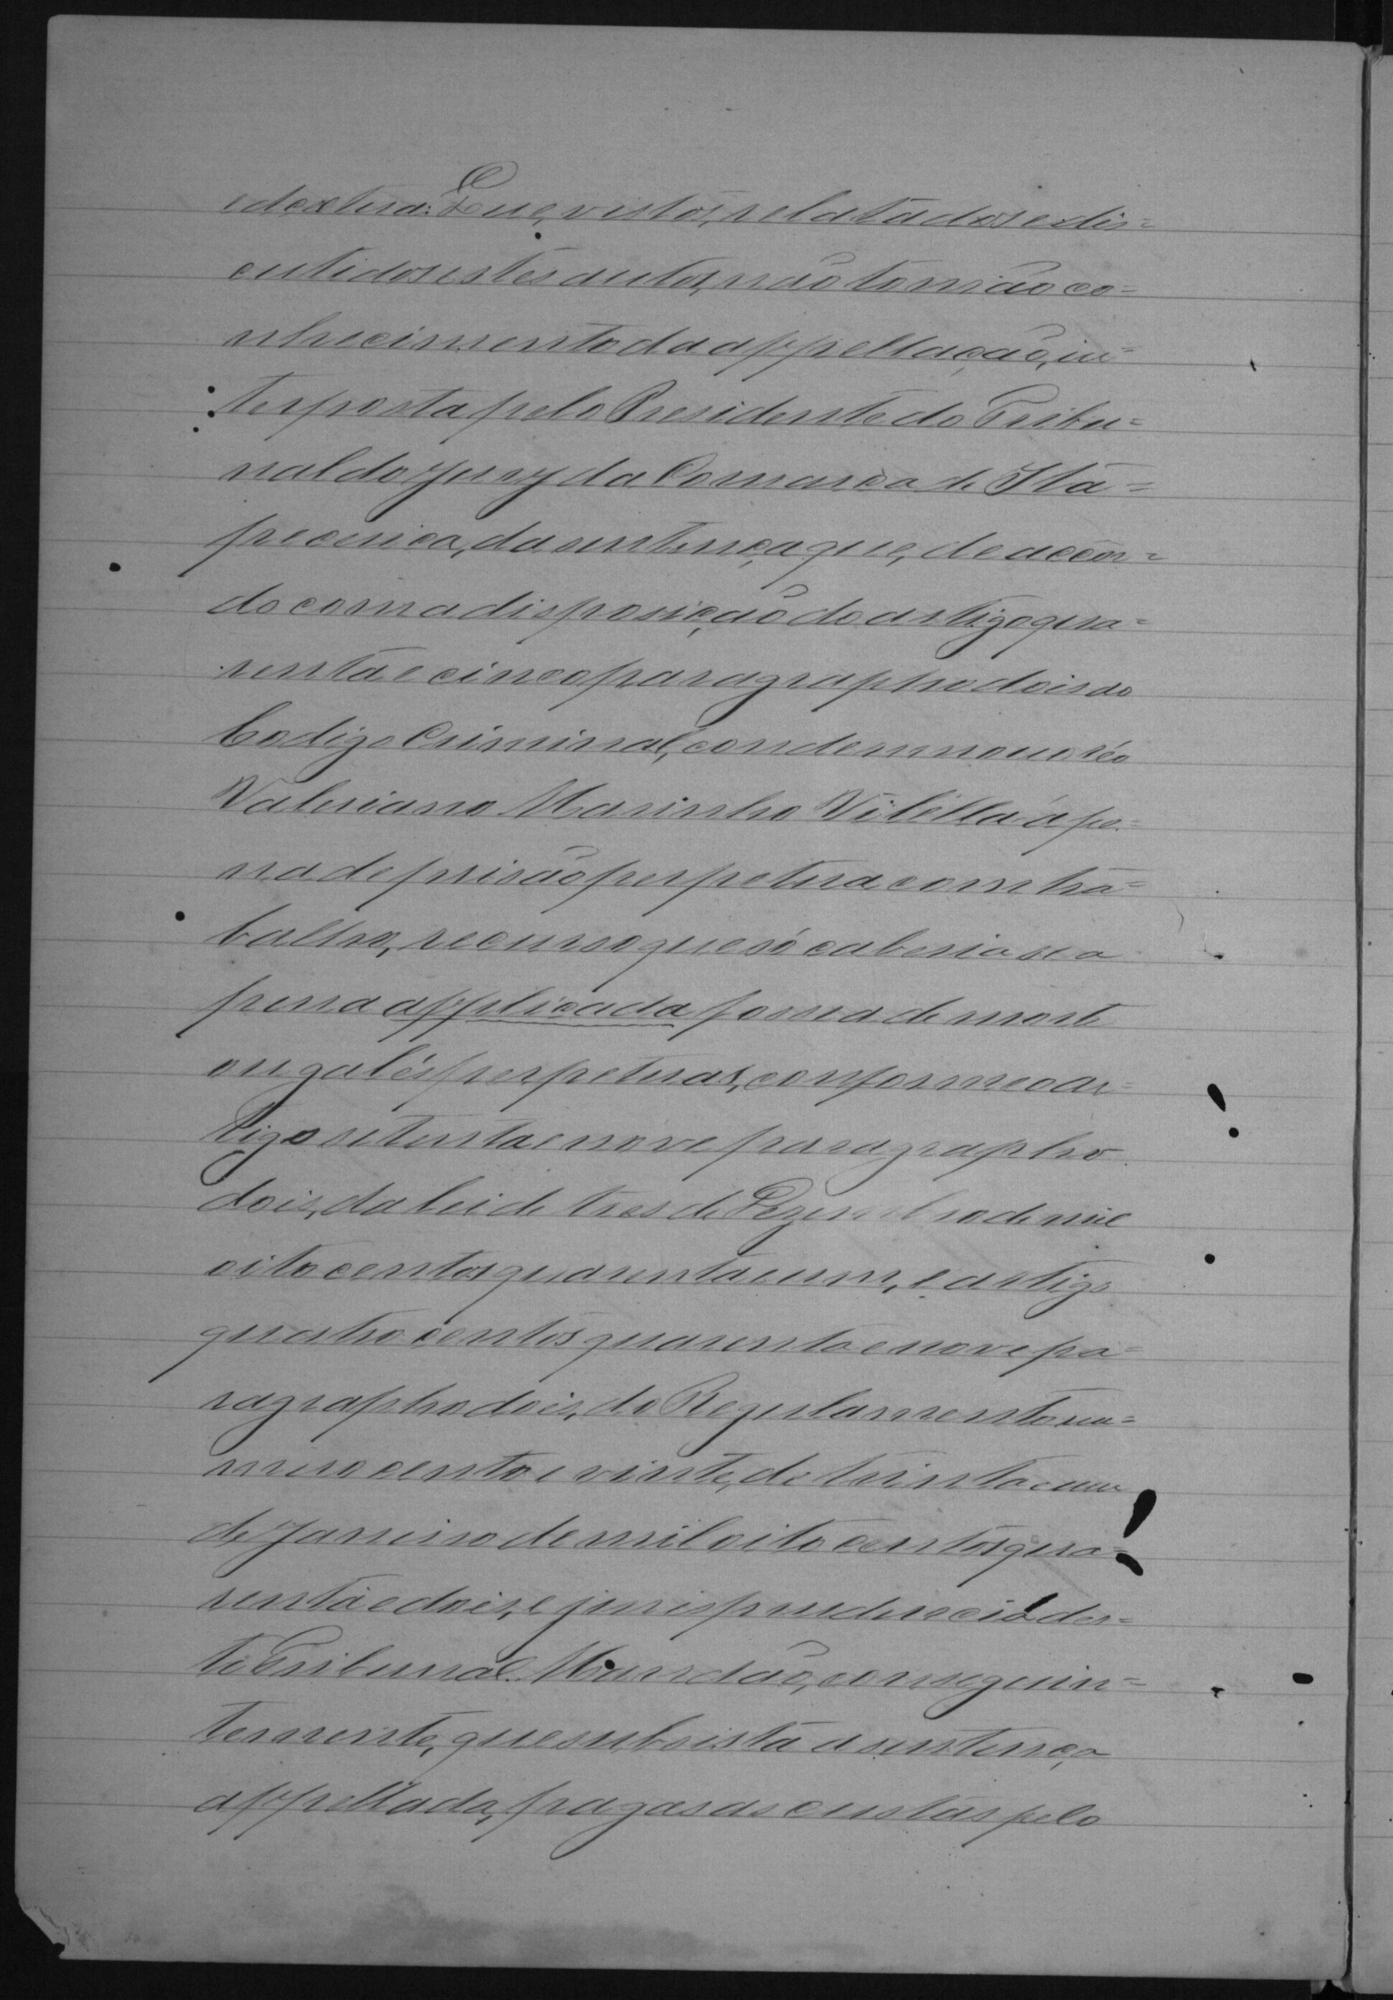 e dextera: Que, vistos, relatados e dis=
cutidos estes autos, não tomão co=
nhecimento da appellação, in=
terposta pelo Presidente do Tribu=
nal do Jury da Comarca de Ita=
pecerica, da sentença que, de accor=
do com a disposição do artigo qua=
renta e cinco paragrapho dois do
Codigo Criminal, condemnou o réo
Valeriano Marinho Vilella á pe=
na de prisão perpetua com tra=
balho, recurso que só caberia se a
pena applicada fosse a de morte
ou galés perpetuas, conforme o ar=
tigo setenta e nove paragrapho
dois, da lei de tres de Dezembro de mil
oitocentos quarenta e um, e artigo
quatrocentos quarenta e nove pa=
ragrapho dois, do Regulamento nu=
mero cento e vinte, de trinta e um
de Janeiro de mil oitocentos qua=
renta e dois, e jurisprudencia des=
te Tribunal. Mandão, conseguin=
temente, que subsista a sentença
appellada, pagas as custas pelo